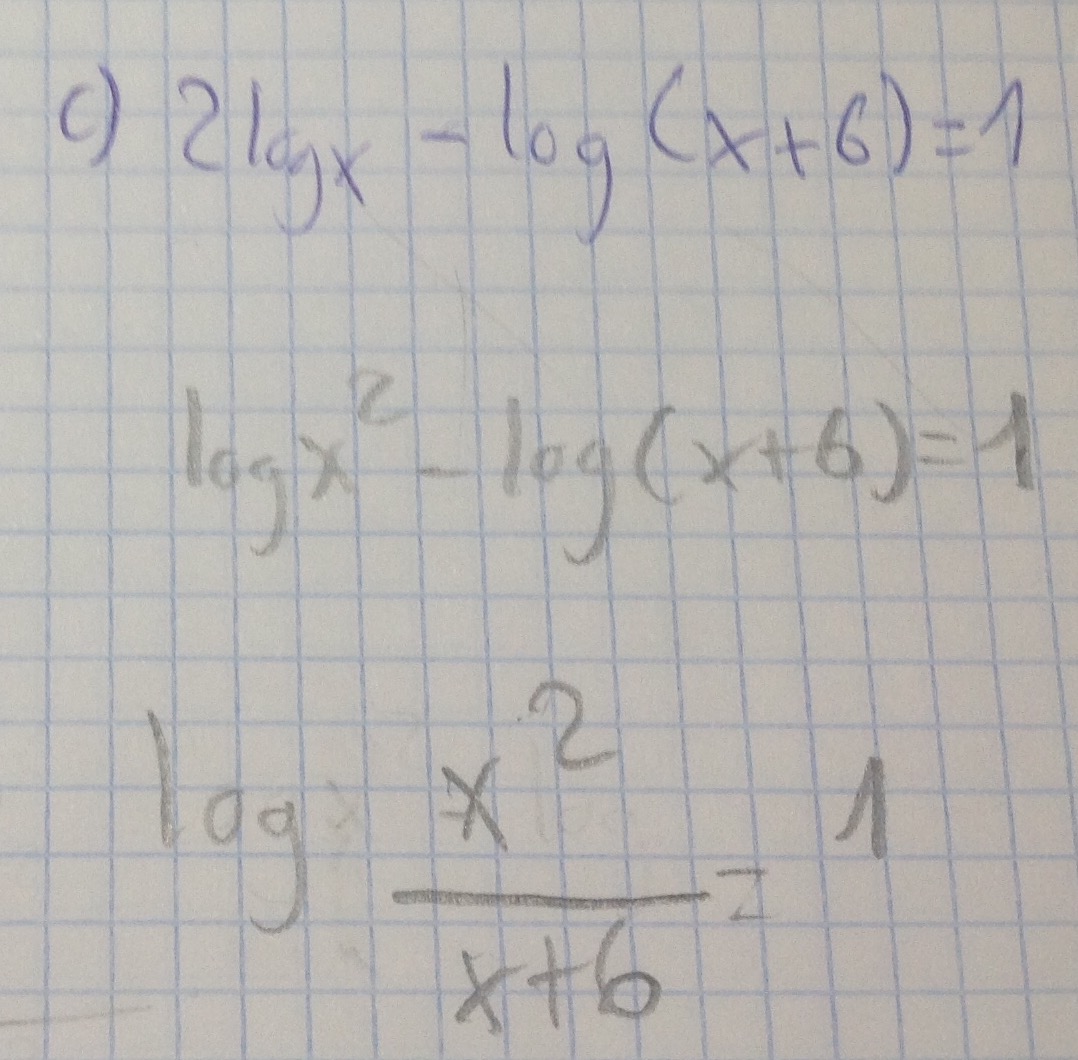 c) 2logx - log (x+6)=1
logx² - log(x+6)=1
log x²/x+6 = 1